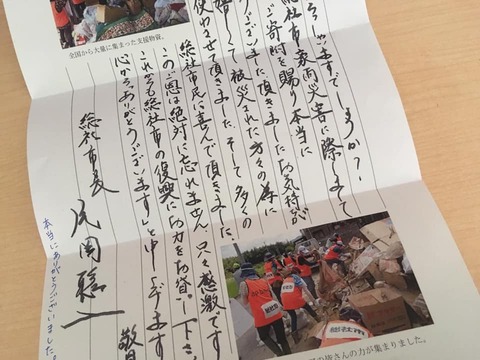 全国から大量に集まった支援物資。
ますでしょうか?
総社市豪雨災害に際しまして
ご寄附を賜り本当に
ありがとうございました。お気持が
嬉しくて被災された方々の為に
使わせて頂きました。そして多くの
総社市民に喜んで頂きました。
このご恩は絶対に忘れません。只々感激です
これからも総社市の復興にお力をお貸し下さい
心から「ありがとうございます」と申し上げます
敬具
総社市長
片岡聡一
本当にありがとうございました
総社市
の皆さんの力が集まりました。